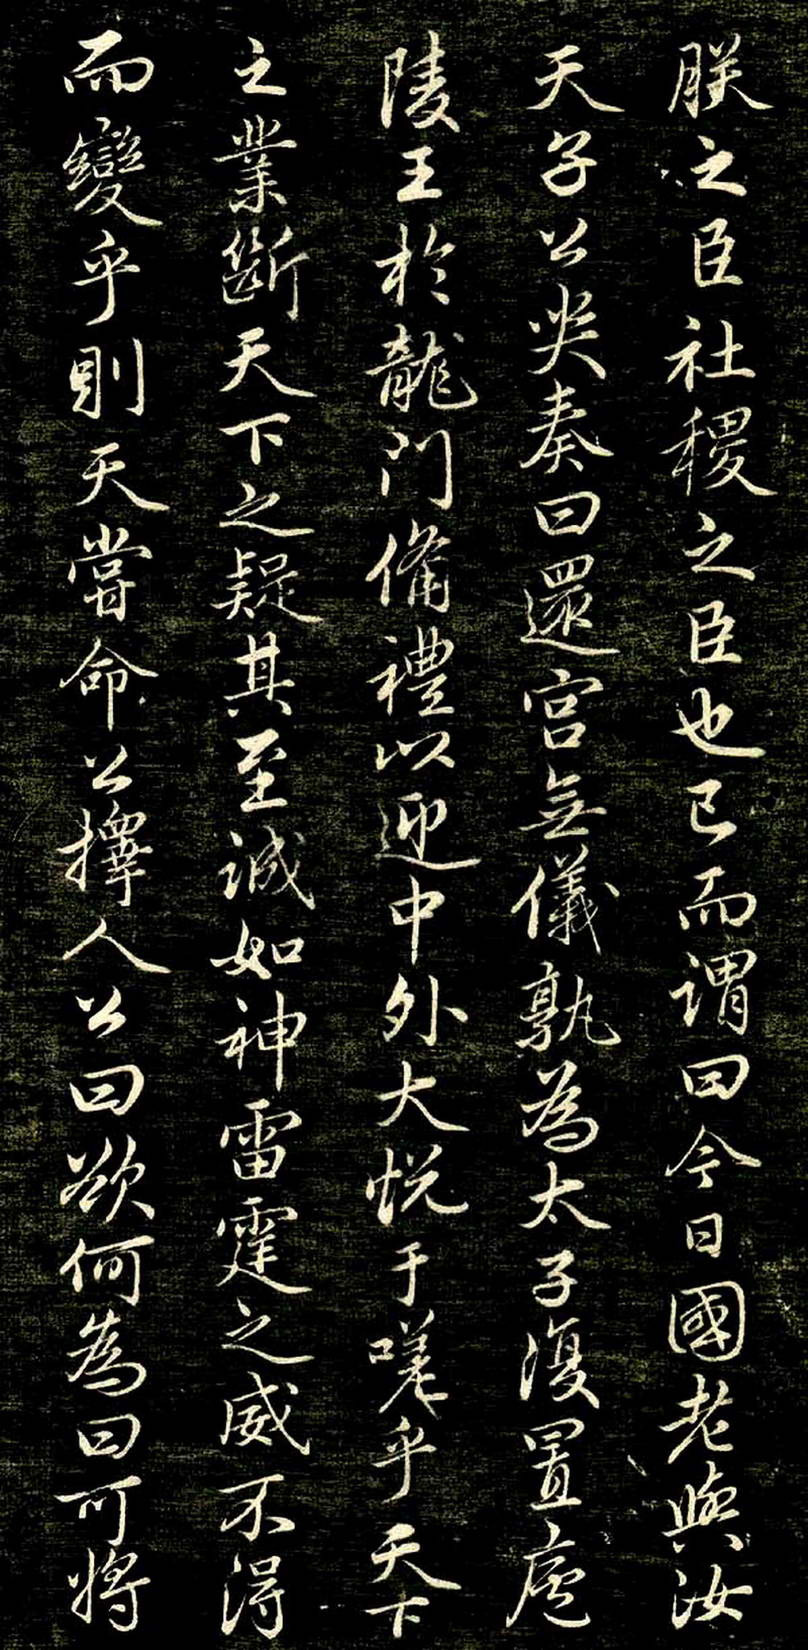 朕之臣社稷之臣也已而謂曰今日國老與汝
天子公哭奏曰還宮無儀孰為太子復置廬
陵王於龍門備禮以迎中外大悅于嗟乎天下
之業斷天下之疑其至誠如神雷霆之威不得
而變乎則天嘗命公擇人公曰欲何為曰可將